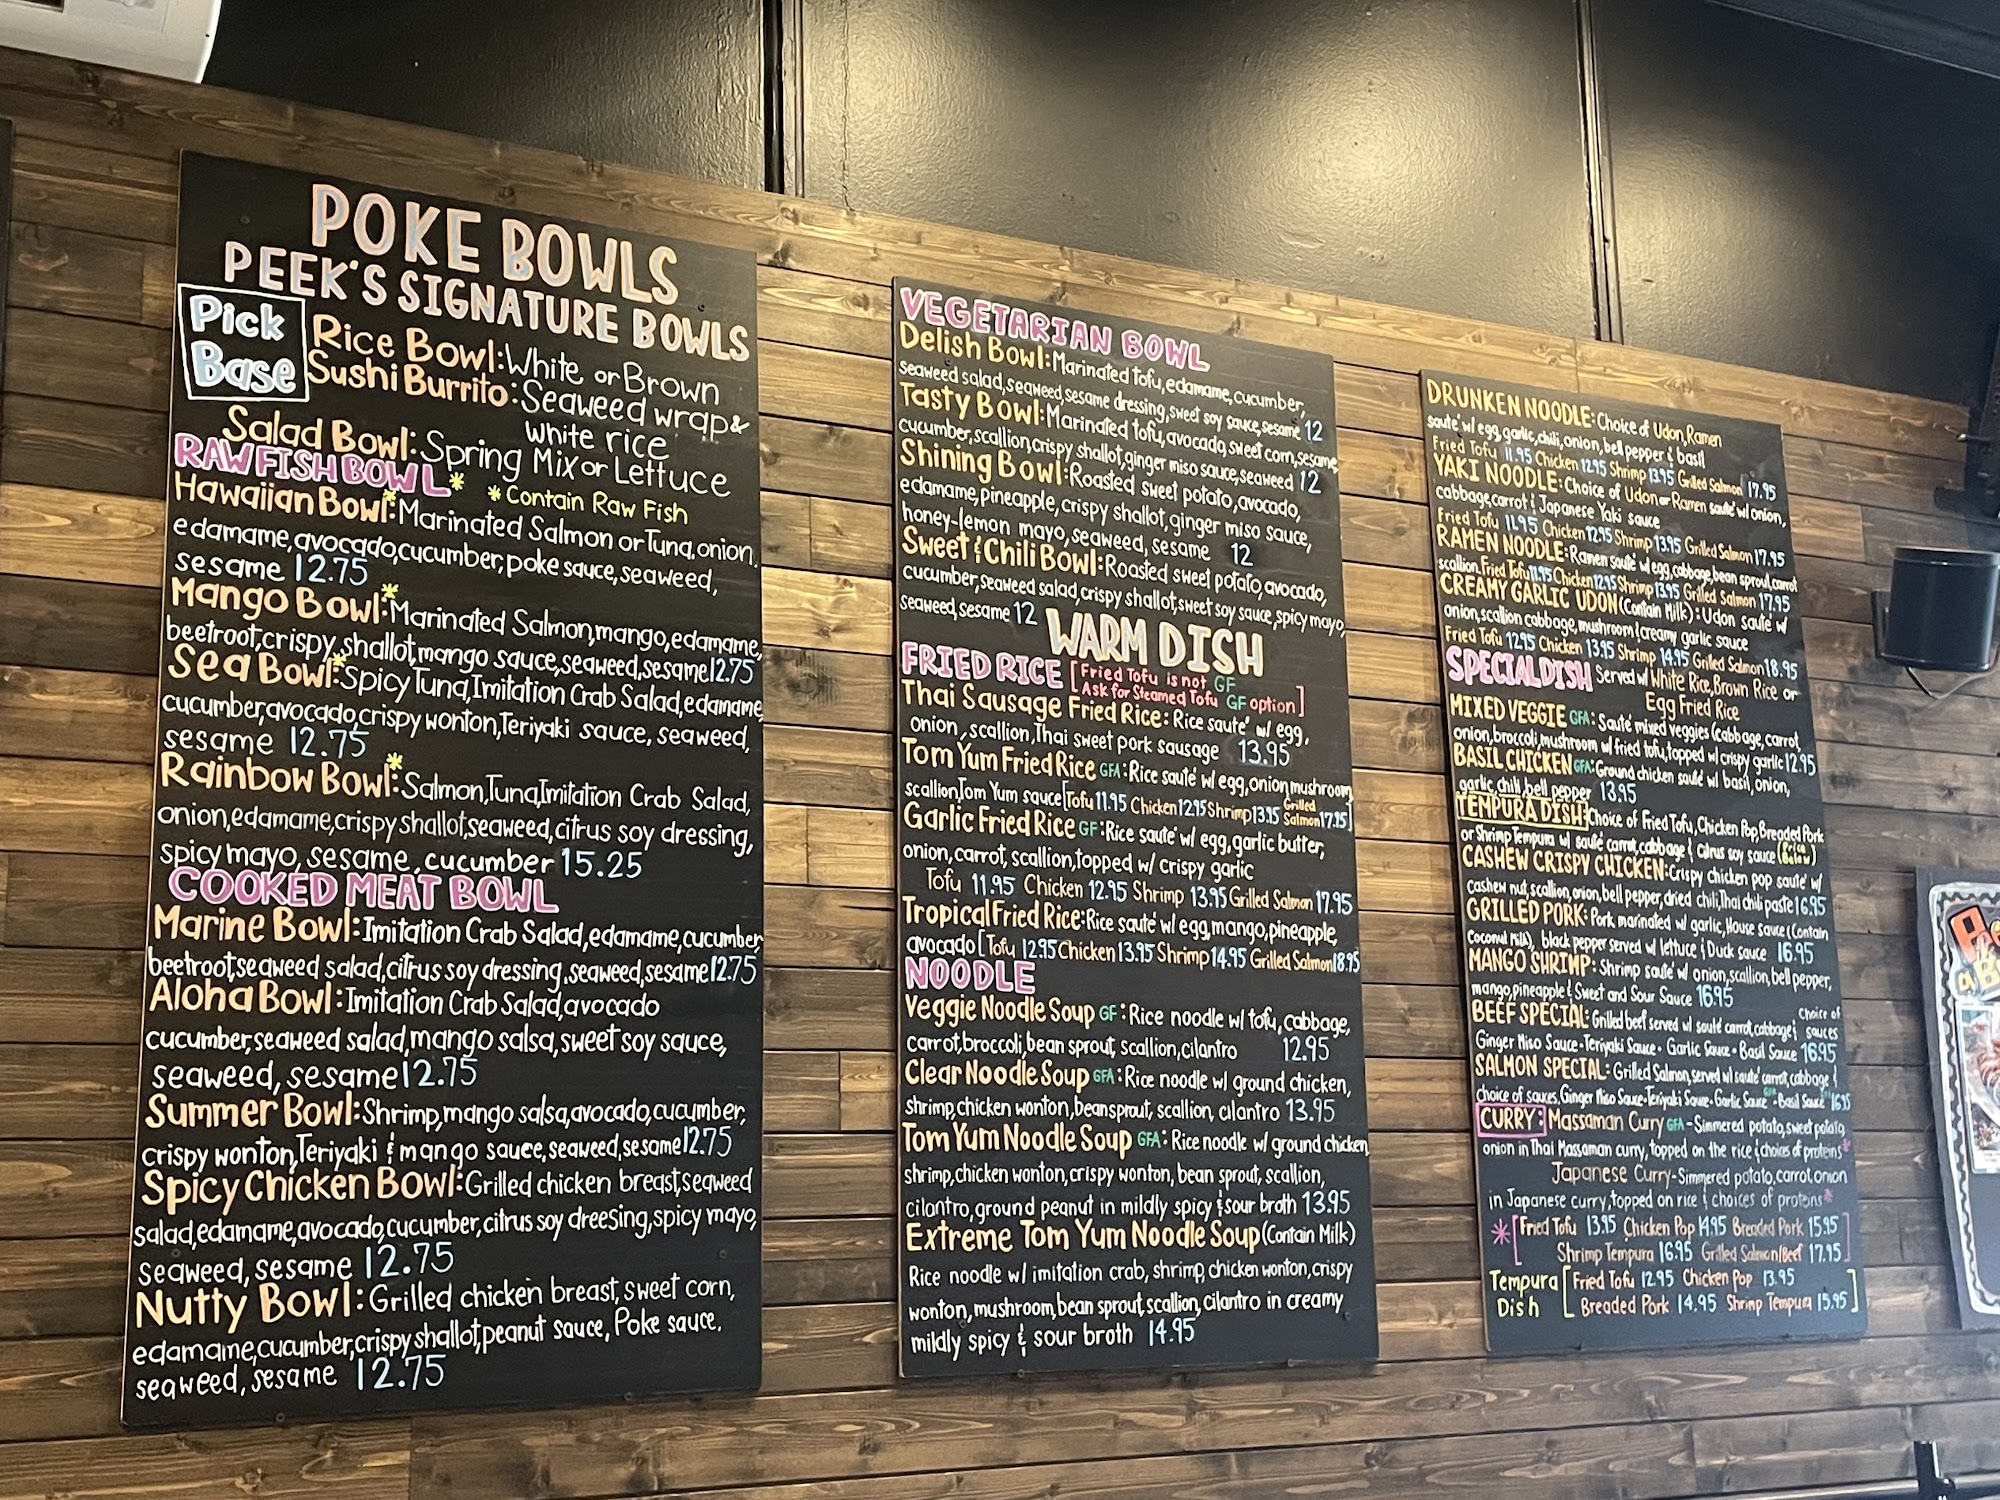 POKE BOWLS
PEEK'S SIGNATURE BOWLS
Pick
Base
Rice Bowl: White or Brown
Sushi Burrito: Seaweed wrap &
white rice
Salad Bowl: Spring Mix or Lettuce
RAW FISH BOWL* *Contain Raw Fish
Hawaiian Bowl*: Marinated Salmon or Tuna, onion,
edamame, avocado, cucumber, poke sauce, seaweed,
sesame 12.75
Mango Bowl*: Marinated Salmon, mango, edamame,
beetroot, crispy shallot, mango sauce, seaweed, sesame 12.75
Sea Bowl*: Spicy Tuna, Imitation Crab Salad, edamame,
cucumber, avocado, crispy wonton, Teriyaki sauce, seaweed,
sesame 12.75
Rainbow Bowl*: Salmon, Tuna, Imitation Crab Salad,
onion, edamame, crispy shallot, seaweed, citrus soy dressing,
spicy mayo, sesame, cucumber 15.25
COOKED MEAT BOWL
Marine Bowl: Imitation Crab Salad, edamame, cucumber,
beetroot, seaweed salad, citrus soy dressing, seaweed, sesame 12.75
Aloha Bowl: Imitation Crab Salad, avocado
cucumber, seaweed salad, mango salsa, sweet soy sauce,
seaweed, sesame 12.75
Summer Bowl: Shrimp, mango salsa, avocado, cucumber,
crispy wonton, Teriyaki & mango sauce, seaweed, sesame 12.75
Spicy Chicken Bowl: Grilled chicken breast, seaweed
salad, edamame, avocado, cucumber, citrus soy dreesing, spicy mayo,
seaweed, sesame 12.75
Nutty Bowl: Grilled chicken breast, sweet corn,
edamame, cucumber, crispy shallot, peanut sauce, Poke sauce,
seaweed, sesame 12.75
VEGETARIAN BOWL
Delish Bowl: Marinated tofu, edamame, cucumber,
seaweed salad, seaweed, sesame dressing, sweet soy sauce, sesame 12
Tasty Bowl: Marinated tofu, avocado, sweet corn, sesame,
cucumber, scallion, crispy shallot, ginger miso sauce, seaweed 12
Shining Bowl: Roasted sweet potato, avocado,
edamame, pineapple, crispy shallot, ginger miso sauce,
honey-lemon mayo, seaweed, sesame 12
Sweet & Chili Bowl: Roasted sweet potato, avocado,
cucumber, seaweed salad, crispy shallot, sweet soy sauce, spicy mayo,
seaweed, sesame 12
WARM DISH
FRIED RICE [Fried Tofu is not GF
Ask for Steamed Tofu GF option]
Thai Sausage Fried Rice: Rice sauté w/ egg,
onion, scallion, Thai sweet pork sausage 13.95
Tom Yum Fried Rice GFA: Rice sauté w/ egg, onion, mushroom,
scallion, Tom Yum sauce [Tofu 11.95 Chicken 12.95 Shrimp 13.95 Grilled Salmon 17.95]
Garlic Fried Rice GF: Rice sauté w/ egg, garlic butter,
onion, carrot, scallion, topped w/ crispy garlic
Tofu 11.95 Chicken 12.95 Shrimp 13.95 Grilled Salmon 17.95
Tropical Fried Rice: Rice sauté w/ egg, mango, pineapple,
avocado [Tofu 12.95 Chicken 13.95 Shrimp 14.95 Grilled Salmon 18.95
NOODLE
Veggie Noodle Soup GF: Rice noodle w/ tofu, cabbage,
carrot, broccoli, bean sprout, scallion, cilantro 12.95
Clear Noodle Soup GFA: Rice noodle w/ ground chicken,
shrimp, chicken wonton, beansprout, scallion, cilantro 13.95
Tom Yum Noodle Soup GFA: Rice noodle w/ ground chicken,
shrimp, chicken wonton, crispy wonton, bean sprout, scallion,
cilantro, ground peanut in mildly spicy & sour broth 13.95
Extreme Tom Yum Noodle Soup (Contain Milk)
Rice noodle w/ imitation crab, shrimp, chicken wonton, crispy
wonton, mushroom, bean sprout, scallion, cilantro in creamy
mildly spicy & sour broth 14.95
DRUNKEN NOODLE: Choice of Udon, Ramen
sauté w/ egg, garlic, chili, onion, bell pepper & basil
Fried Tofu 11.95 Chicken 12.95 Shrimp 13.95 Grilled Salmon 17.95
YAKI NOODLE: Choice of Udon or Ramen sauté w/ onion,
cabbage, carrot & Japanese Yaki sauce
Fried Tofu 11.95 Chicken 12.95 Shrimp 13.95 Grilled Salmon 17.95
RAMEN NOODLE: Ramen sauté w/ egg, cabbage, bean sprout, carrot
scallion, Fried Tofu 11.95 Chicken 12.95 Shrimp 13.95 Grilled Salmon 17.95
CREAMY GARLIC UDON (Contain Milk): Udon sauté w/
onion, scallion cabbage, mushroom & creamy garlic sauce
Fried Tofu 12.95 Chicken 13.95 Shrimp 14.95 Grilled Salmon 18.95
SPECIAL DISH Served w/ White Rice, Brown Rice or
Egg Fried Rice
MIXED VEGGIE GFA: Sauté mixed veggies (cabbage, carrot,
onion, broccoli, mushroom w/ fried tofu, topped w/ crispy garlic 12.95
BASIL CHICKEN GFA: Ground chicken sauté w/ basil, onion,
garlic, chili, bell pepper 13.95
TEMPURA DISH: Choice of Fried Tofu, Chicken Pop, Breaded Pork
or Shrimp Tempura w/ sauté carrot, cabbage & citrus soy sauce (Price Below)
CASHEW CRISPY CHICKEN: Crispy chicken pop sauté w/
cashew nut, scallion, onion, bell pepper, dried chili, Thai chili paste 16.95
GRILLED PORK: Pork marinated w/ garlic, House sauce (Contain
Coconut Milk), black pepper served w/ lettuce & Duck sauce 16.95
MANGO SHRIMP: Shrimp sauté w/ onion, scallion, bell pepper,
mango, pineapple & Sweet and Sour Sauce 16.95
BEEF SPECIAL: Grilled beef served w/ sauté carrot, cabbage & Choice of sauces
Ginger Miso Sauce · Teriyaki Sauce · Garlic Sauce · Basil Sauce 16.95
SALMON SPECIAL: Grilled Salmon, served w/ sauté carrot, cabbage &
choice of sauces, Ginger Miso Sauce · Teriyaki Sauce · Garlic Sauce GFA · Basil Sauce 16.95
CURRY: Massaman Curry GFA - Simmered potato, sweet potato,
onion in Thai Massaman curry, topped on the rice & choices of proteins*
Japanese Curry - Simmered potato, carrot, onion
in Japanese curry, topped on rice & choices of proteins*
*[Fried Tofu 13.95 Chicken Pop 14.95 Breaded Pork 15.95
Shrimp Tempura 16.95 Grilled Salmon/Beef 17.95]
Tempura
Dish
[Fried Tofu 12.95 Chicken Pop 13.95
Breaded Pork 14.95 Shrimp Tempura 15.95]